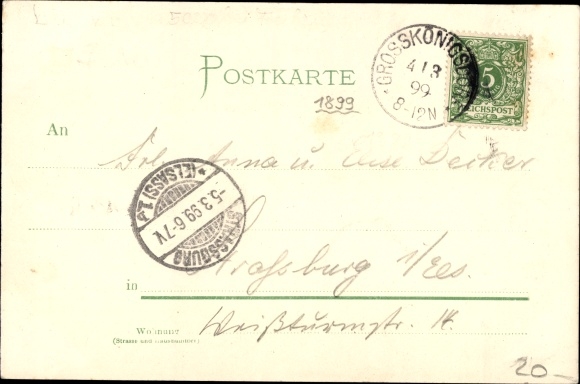 POSTKARTE
1899
GROSSKÖNIGSD
4/3
99
8-12N
5
REICHSPOST
An
Frl. Anna u. Else Decker
STRASSBURG
-5.3.99.6-7V.
* (ELSASS) 1a
Straßburg i/Els.
in
Weißturmstr. 14.
Wohnung
(Strasse und Hausnummer)
20.-